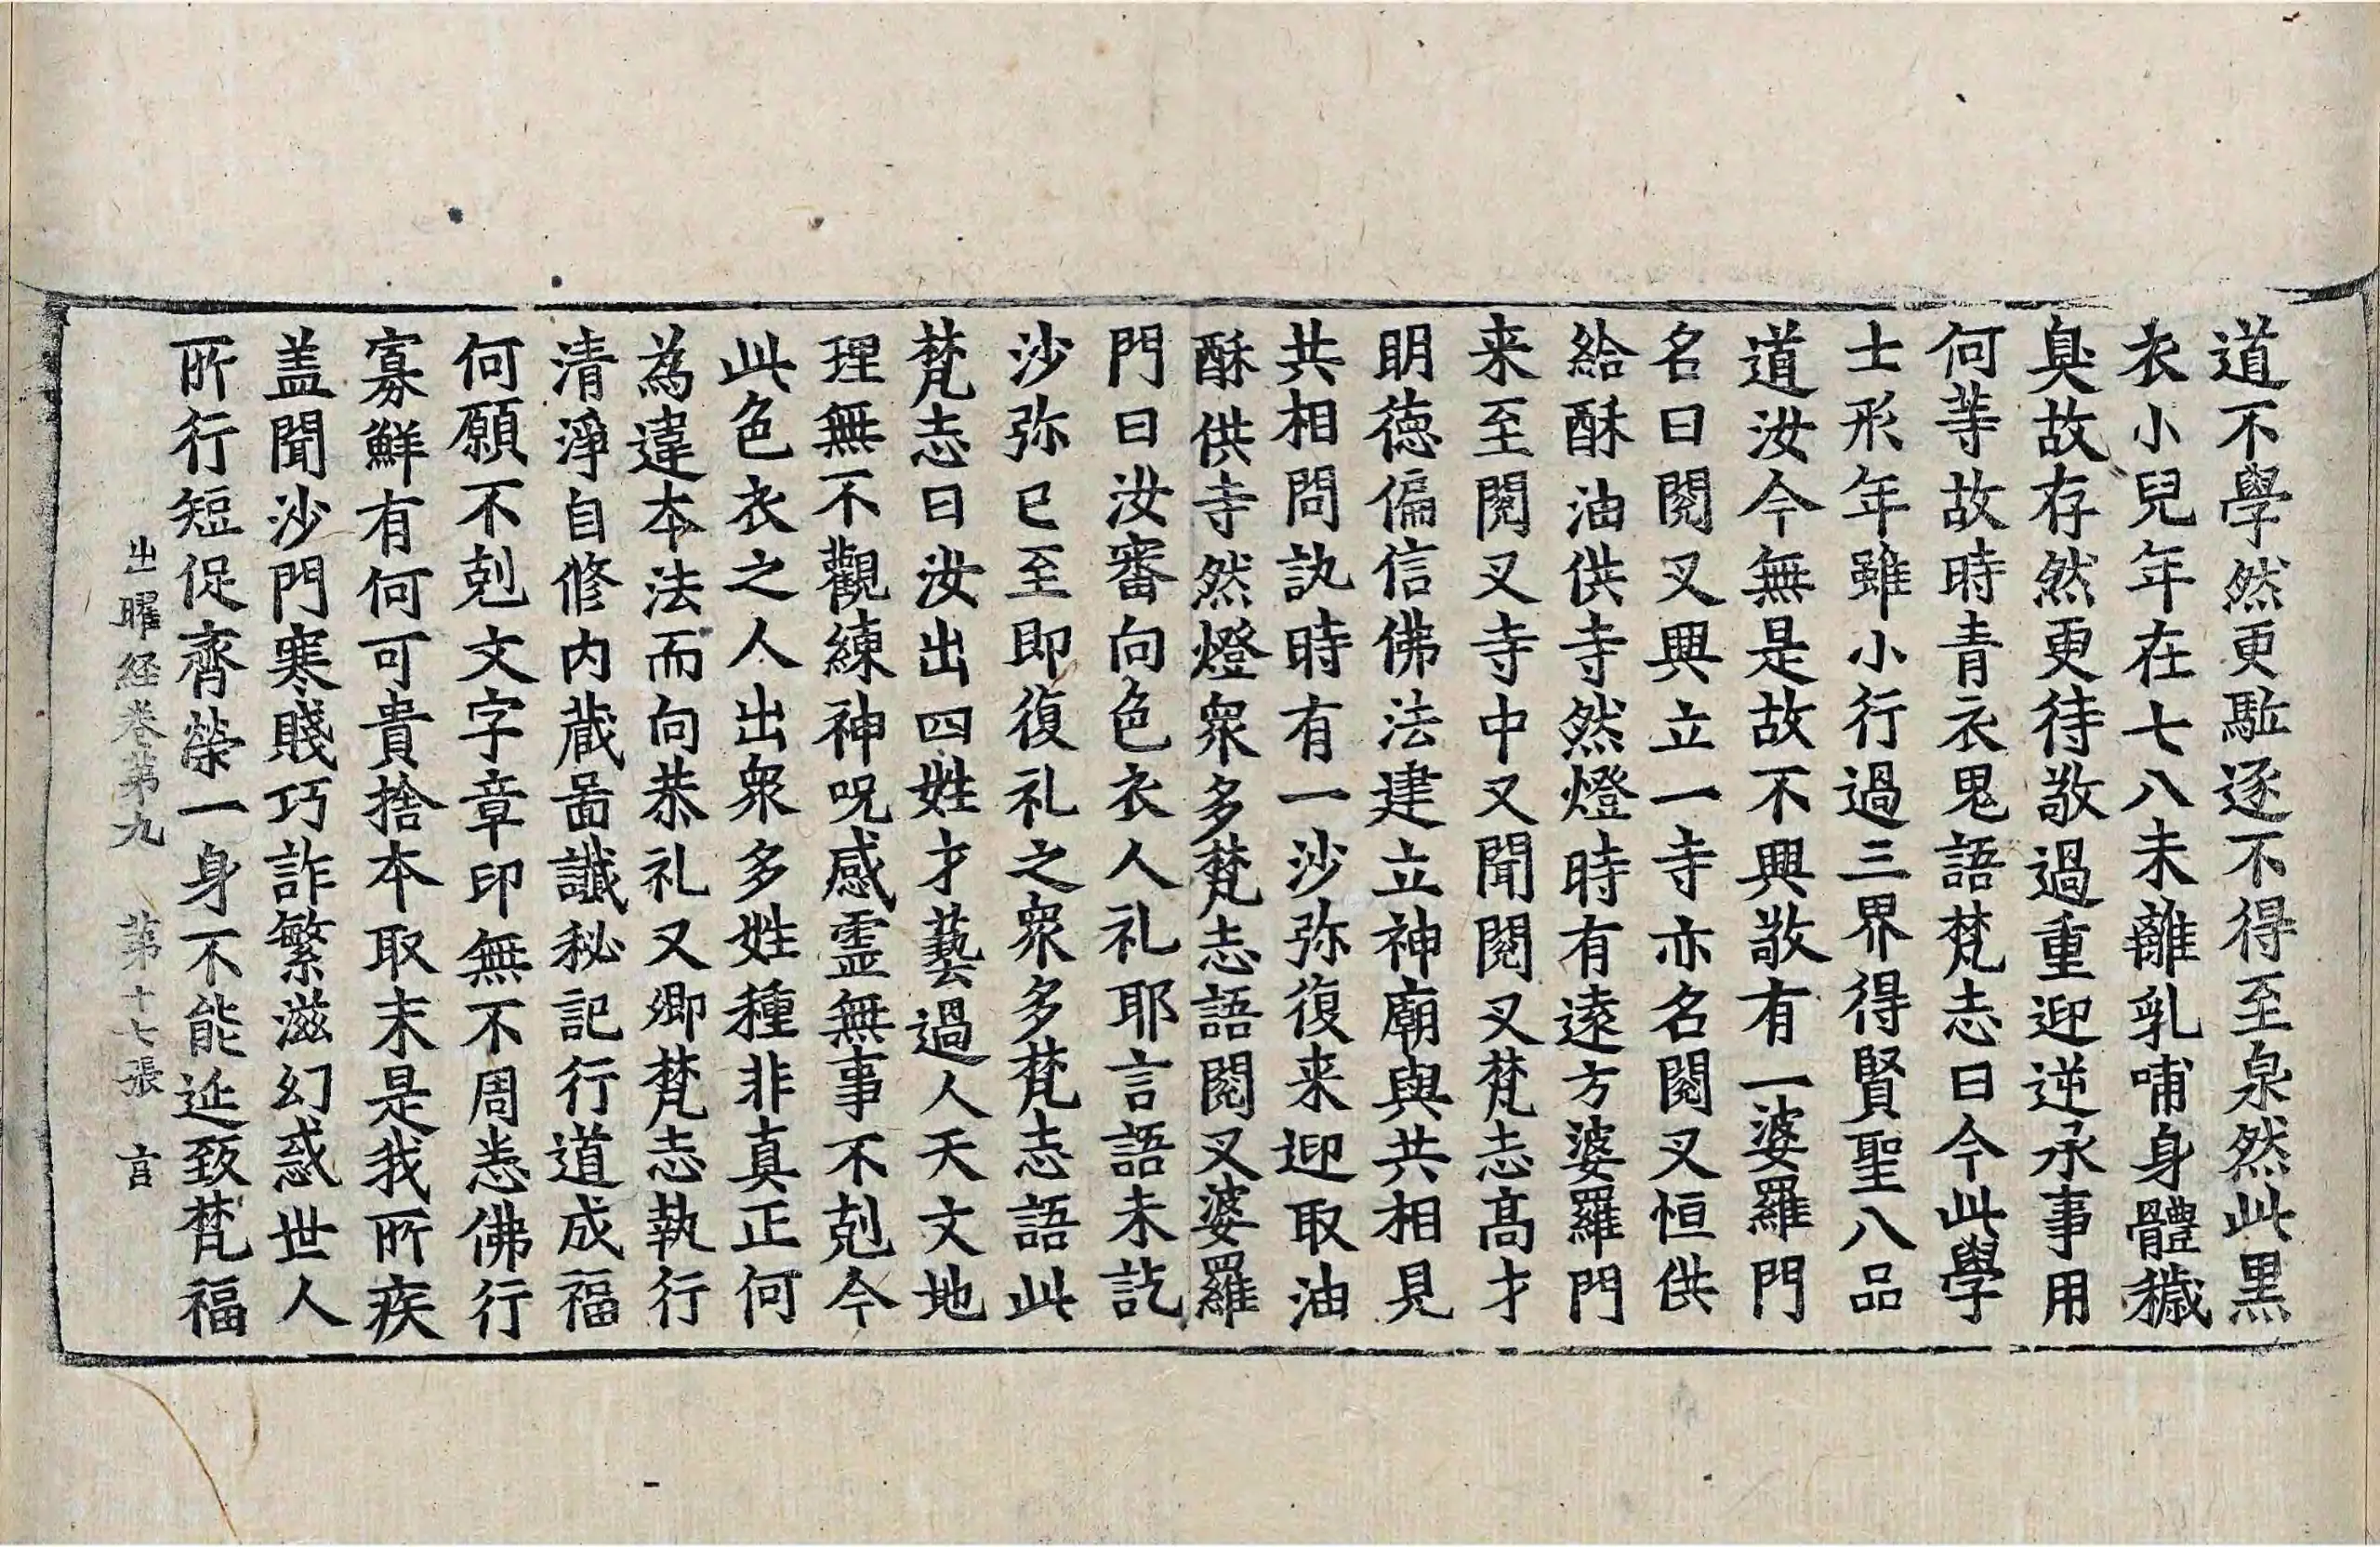 道不學然更駈逐不得至泉然此黒
衣小兒年在七八未離乳哺身體穢
臭故存然更待敬過重迎逆承事用
何等故故時青衣鬼語梵志曰今此學
士形年雖小行過三界得賢聖八品
道汝今無是故不興敬有一婆羅門
名曰閱叉興立一寺亦名閱叉恒供
給酥油供寺然燈時有遠方婆羅門
来至閱叉寺中又聞閱叉梵志高才
明德偏信佛法建立神廟與共相見
共相問訊時有一沙弥復来迎取油
酥供寺然燈衆多梵志語閱叉婆羅
門曰汝審向色衣人礼耶言語未訖
沙弥已至即復礼之衆多梵志語此
梵志曰汝出四姓才藝過人天文地
理無不觀練神呪感霊無事不剋今
此色衣之人出衆多姓種非真正何
為違本法而向恭礼又卿梵志執行
清淨自修内蔵啚讖秘記行道成福
何願不剋文字章印無不周悉佛行
寡鮮有何可貴捨本取末是我所疾
盖聞沙門寒賤巧詐繁滋幻惑世人
所行短促齊榮一身不能延致梵福
出曜経卷第九 第十七張 言